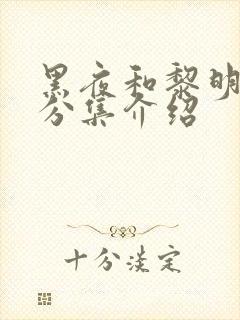 黑夜和黎明
分集介绍
十分淡定